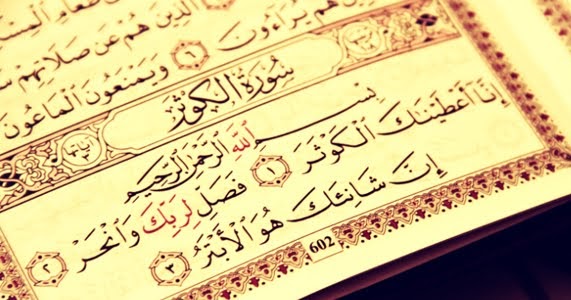 طَعَامِ الْمِسْ
الَّذِينَ هُمْ عَن صَلَاتِهِمْ سَ
هُمْ يُرَآءُونَ ٦ وَيَمْنَعُونَ الْمَاعُونَ
سُورَةُ الْكَوْثَرِ
بِسْمِ اللَّهِ الرَّحْمَٰنِ الرَّحِيمِ
إِنَّآ أَعْطَيْنَٰكَ الْكَوْثَرَ ١ فَصَلِّ لِرَبِّكَ وَانْحَرْ ٢
إِنَّ شَانِئَكَ هُوَ الْأَبْتَرُ ٣
602